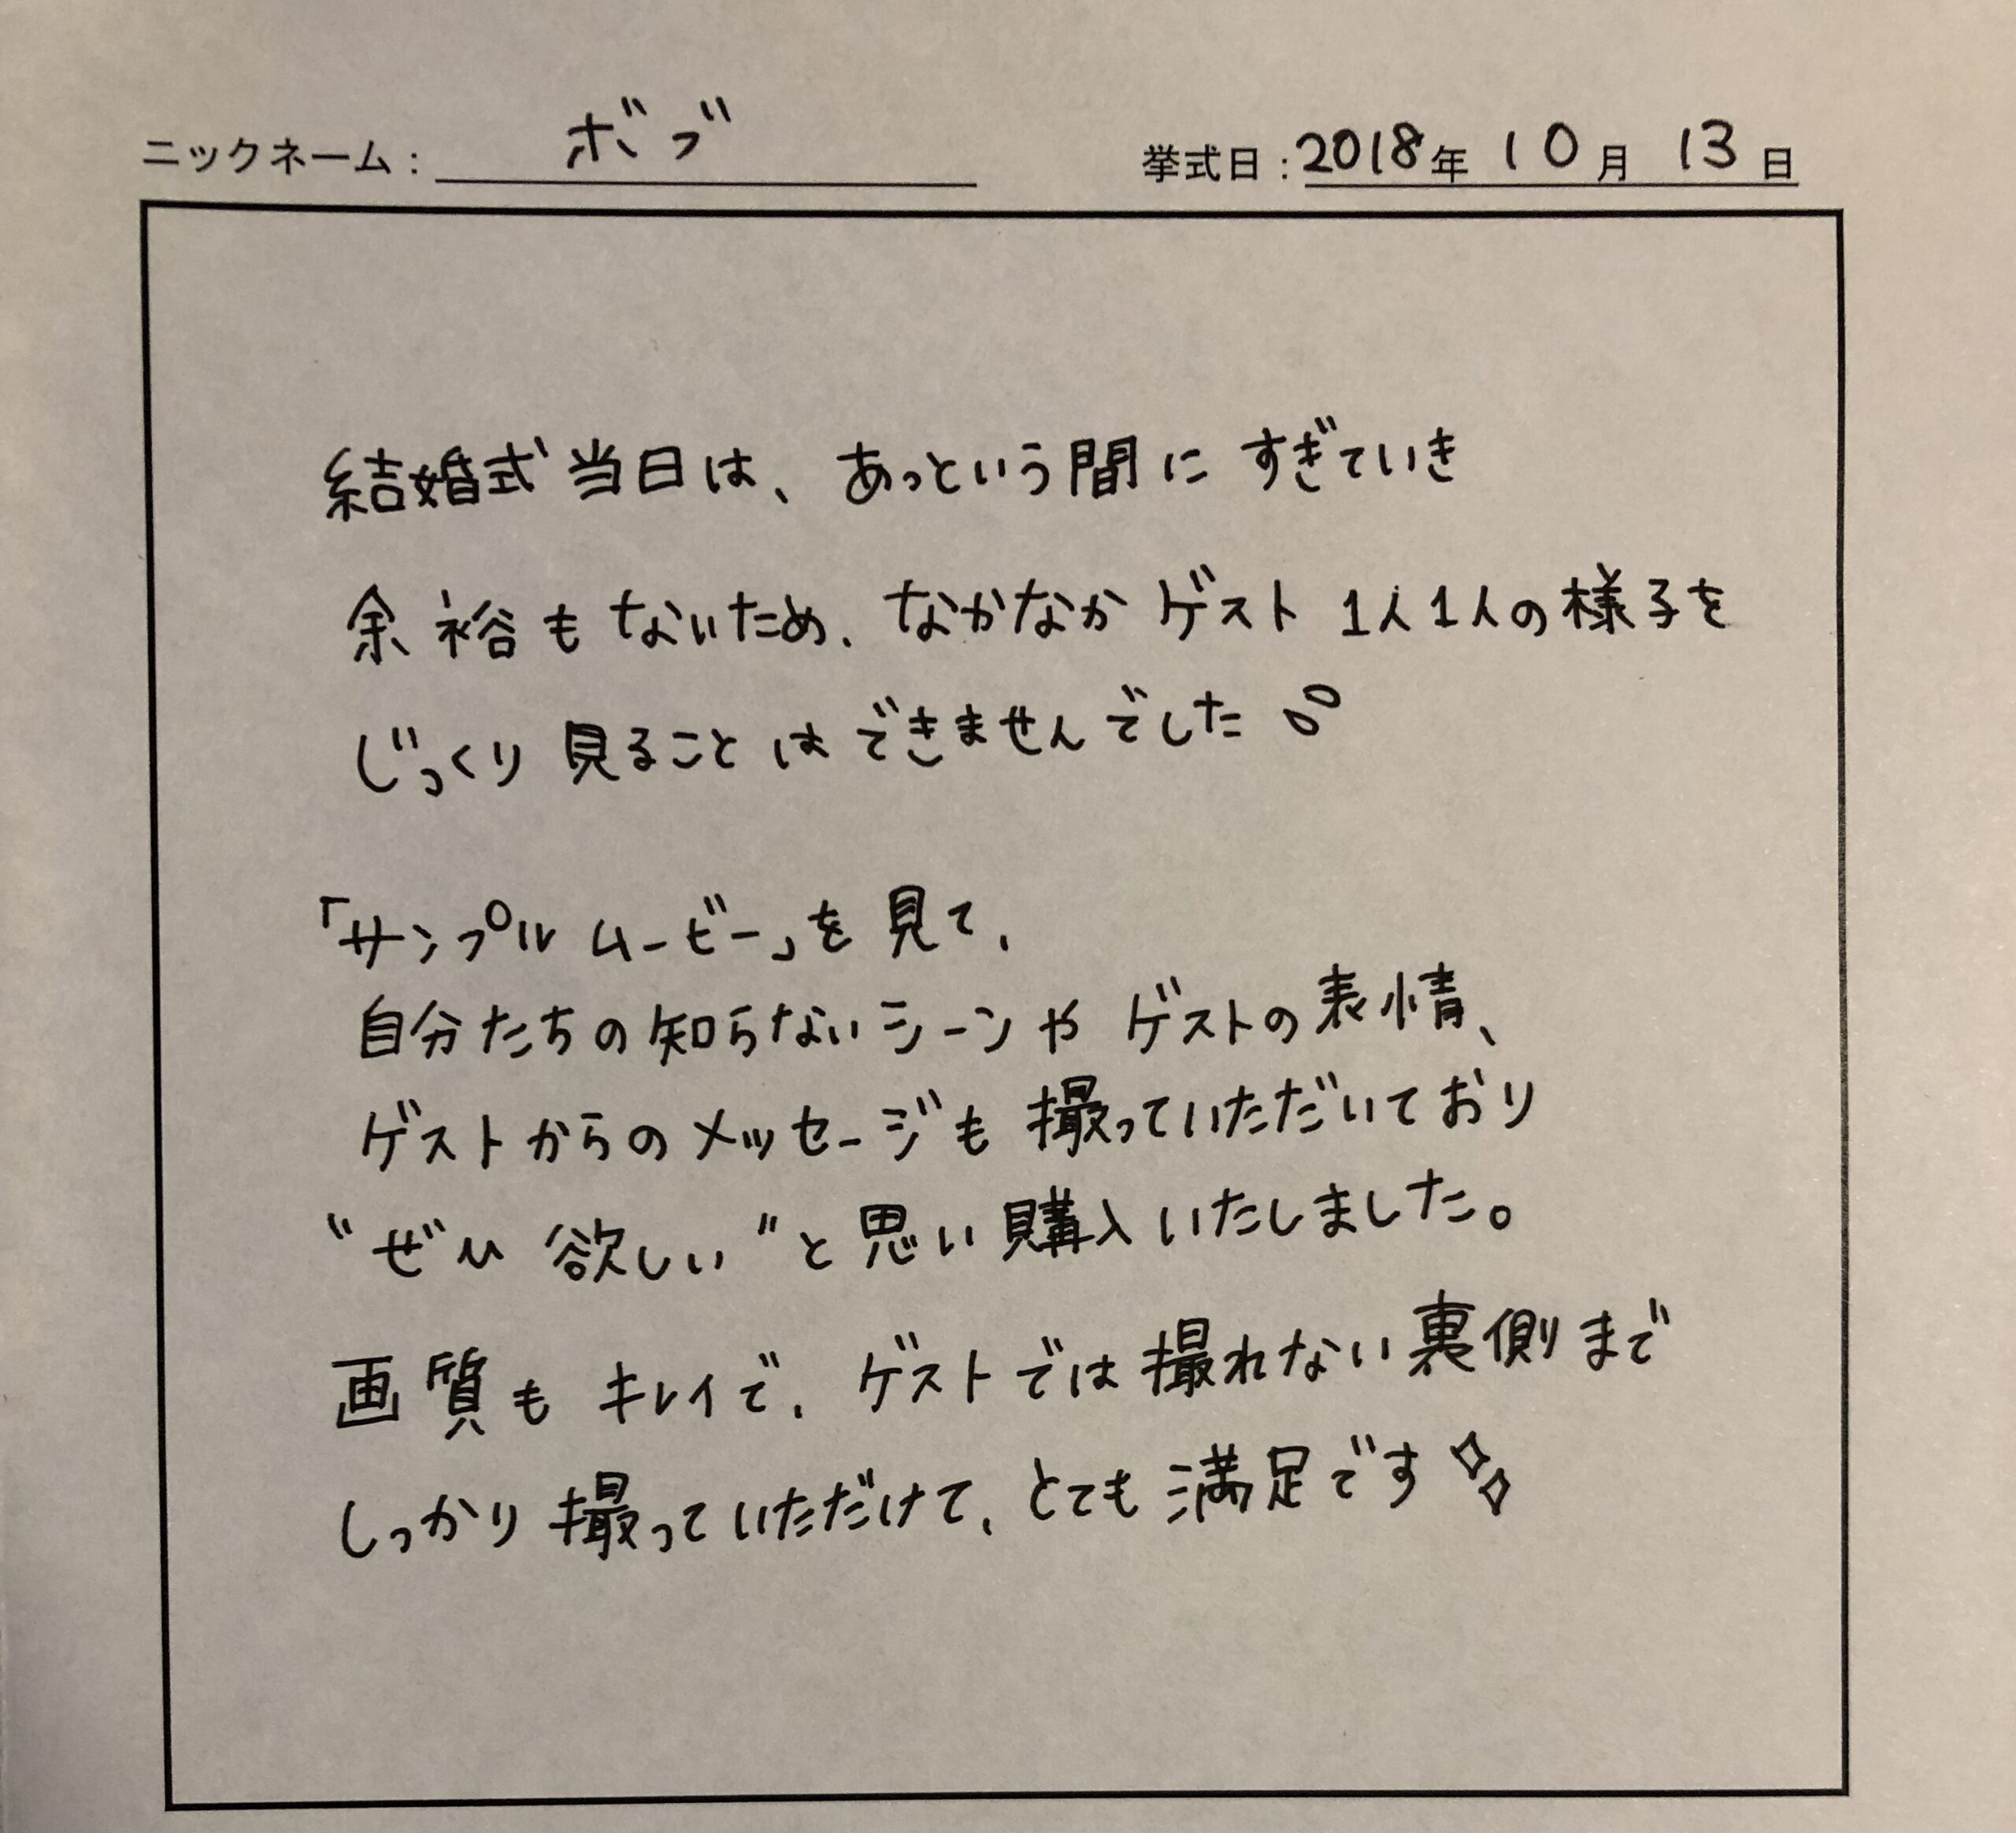 ニックネーム: ボブ 挙式日:2018年 10月 13日
結婚式当日は、あっという間にすぎていき
余裕もないため、なかなかゲスト1人1人の様子を
じっくり見ることはできませんでした
「サンプルムービー」を見て、
自分たちの知らないシーンやゲストの表情、
ゲストからのメッセージも撮っていただいており
"ぜひ欲しい"と思い購入いたしました。
画質もキレイで、ゲストでは撮れない裏側まで
しっかり撮っていただけて、とても満足です